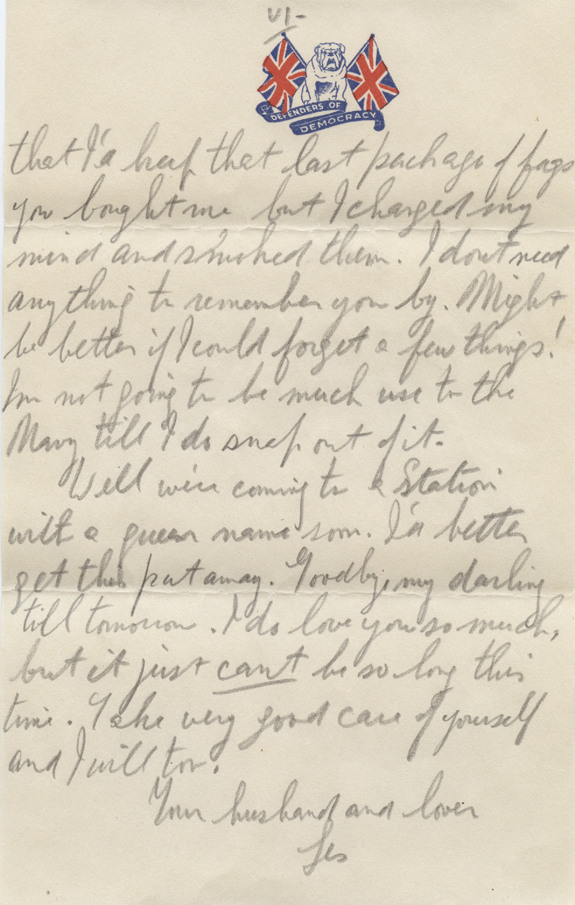 VI-
DEFENDERS OF
DEMOCRACY
that I'd keep that last package of fags
you bought me but I changed my
mind and smoked them. I don't need
anything to remember you by. Might
be better if I could forget a few things!
I'm not going to be much use to the
Navy till I do snap out of it.
Well we're coming to a Station
with a queer name soon. I'd better
get this put away. Goodbye, my darling
till tomorrow. I do love you so much,
but it just can't be so long this
time. Take very good care of yourself
and I will too.
Your husband and lover
Les